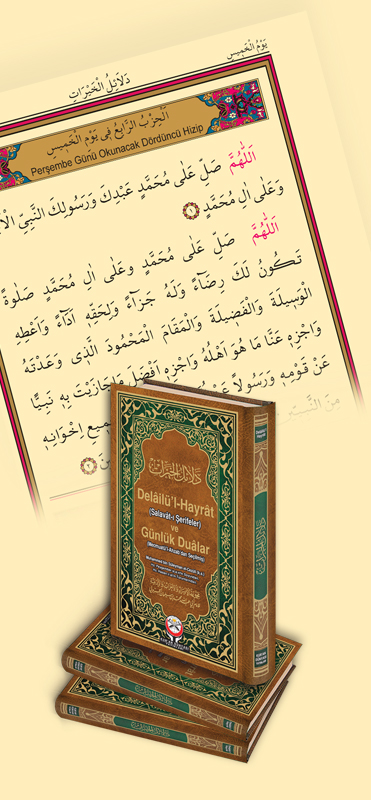 يَوْمُ الْخَمِيسِ
دَلَائِلُ الْخَيْرَاتِ
اَلْحِزْبُ الرَّابِعُ فِي يَوْمِ الْخَمِيسِ
Perşembe Günü Okunacak Dördüncü Hizip
اَللّٰهُمَّ صَلِّ عَلٰى مُحَمَّدٍ عَبْدِكَ وَرَسُولِكَ النَّبِيِّ
وَعَلٰى اٰلِ مُحَمَّدٍ ١
اَللّٰهُمَّ صَلِّ عَلٰى مُحَمَّدٍ وَعَلٰى اٰلِ مُحَمَّدٍ صَلٰوةً
تَكُونُ لَكَ رِضَٓاءً وَلَهُ جَزَٓاءً وَلِحَقِّهٖ اَدَٓاءً وَاَعْطِهِ
الْوَسِيلَةَ وَالْفَضِيلَةَ وَالْمَقَامَ الْمَحْمُودَ الَّذٖى وَعَدْتَهُ
وَاجْزِهٖ عَنَّا مَا هُوَ اَهْلُهُ وَاجْزِهٖ اَفْضَلَ مَا جَازَيْتَ بِهٖ نَبِيًّا
عَنْ قَوْمِهٖ وَرَسُولًا
اِخْوَانِهٖ
مِنَ
٢
دَلَائِلُ الْخَيْرَاتِ
Delâilü'l-Hayrât
(Salavât-ı Şerîfeler)
ve
Günlük Duâlar
دَلَائِلُ الْخَيْرَاتِ
دَلَائِلُ الْخَيْرَاتِ
دَلَائِلُ الْخَيْرَاتِ